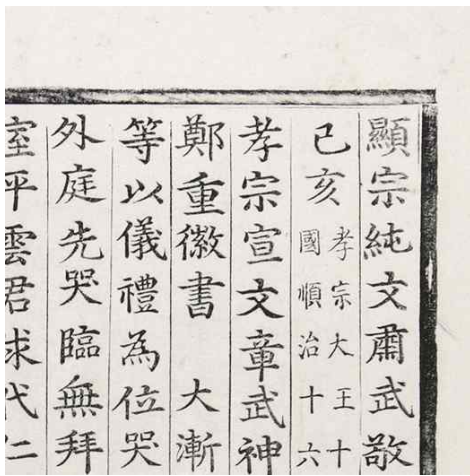 顯宗純文肅武敬
己亥孝宗大王十
國順治十六
孝宗宣文章武神
鄭重徽書　大漸
等以儀禮為位哭
外庭先哭臨無拜
室平雲君俅代仁